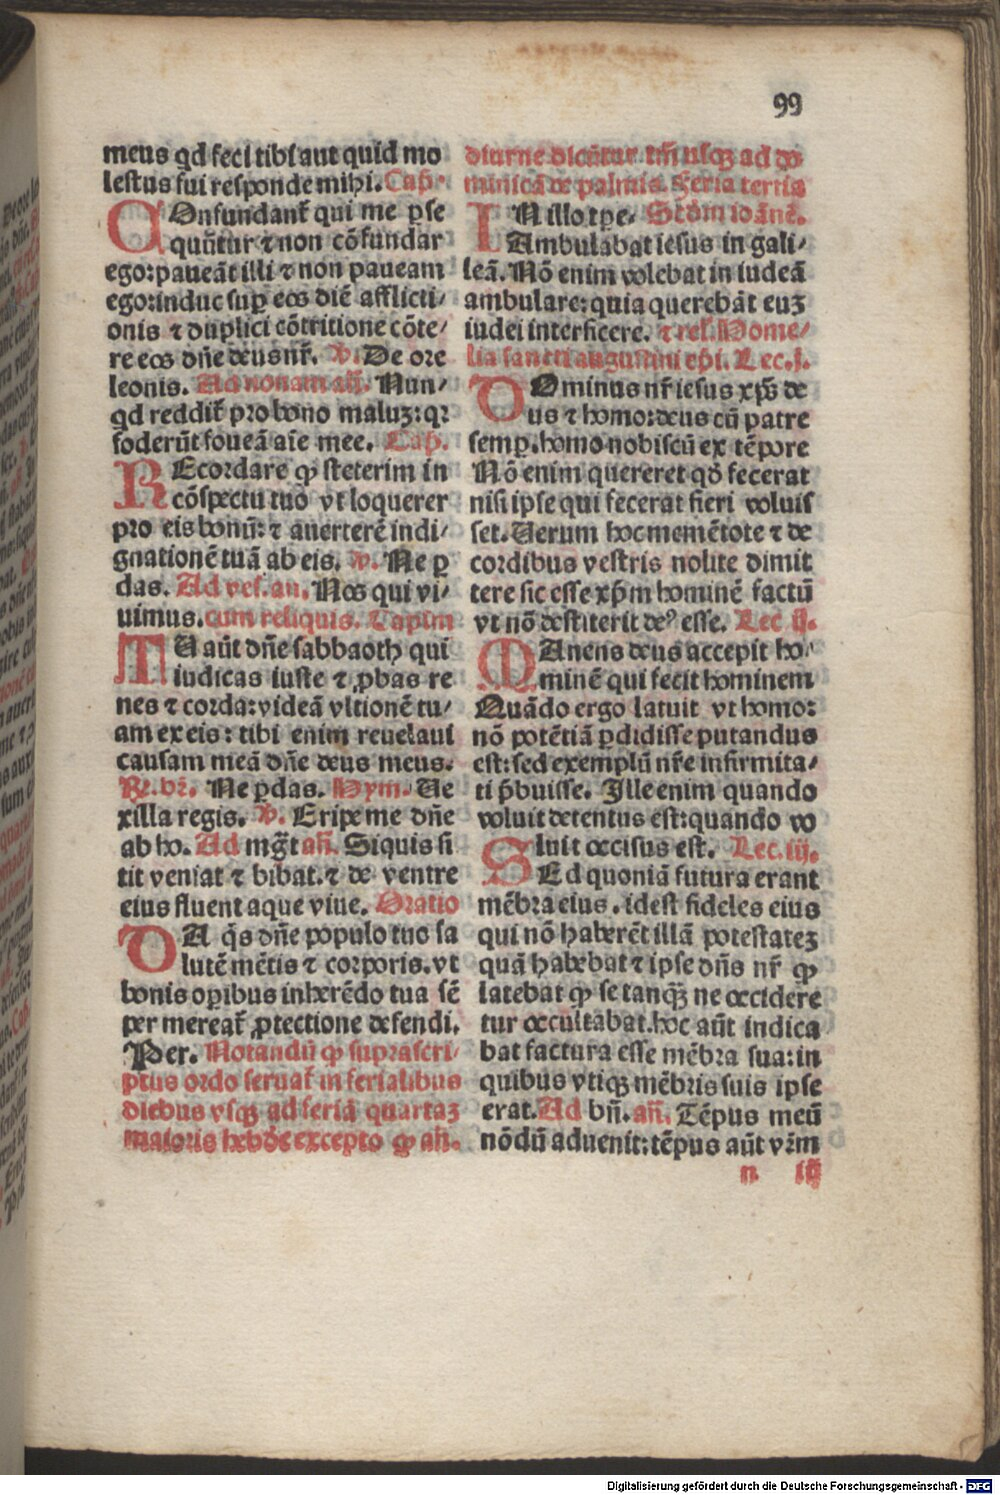 99
meus qd feci tibi aut quid mo
lestus fui responde mihi. Cap̄.
COnfundant᷑ qui me ꝑse
qūtur ⁊ non cōfundar
ego: paueāt illi ⁊ non paueam
ego: induc suꝑ eos diē afflicti/
onis ⁊ duplici cōtritione cōte/
re eos dn̄e deus nr̄. v. De ore
leonis. Ad nonam an̄. Nun/
qd reddit᷑ pro bono maluꝫ: qꝛ
foderūt foueā aīe mee. Cap̄.
REcordare ꝙ steterim in
cōspectu tuo vt loquerer
pro eis bonū: ⁊ auerterē indi/
gnationē tuā ab eis. v. Ne ꝑ
das. Ad ves. an. Nos qui vi/
uimus. cum reliquis. Capim
TU aūt dn̄e sabbaoth qui
iudicas iuste ⁊ ꝓbas re
nes ⁊ corda: videā vltionē tu/
am ex eis: tibi enim reuelaui
causam meā dn̄e deus meus.
Rͥ. br̄. Ne ꝑdas. Hym. Ue
xilla regis. v. Eripe me dn̄e
ab ho. Ad mḡt an̄. Siquis si
tit veniat ⁊ bibat. ⁊ de ventre
eius fluent aque viue. Oratio
DA q̄s dn̄e populo tuo sa
lutē mētis ⁊ corporis. vt
bonis oꝑibus inherēdo tua sē
per mereat᷑ ꝓtectione defendi.
Per. Notandū ꝙ suprascri/
ptus ordo seruat᷑ in ferialibus
diebus vsqꝫ ad feriā quartaꝫ
maioris hebdo͞e excepto ꝙ an̄.
diurne dicūtur tm̄ usqꝫ ad do
minicā de palmis. Feria tertia
IN illo tꝑe. Scd̄m ioānē.
Ambulabat iesus in gali/
leā. Nō enim volebat in iudeā
ambulare: quia querebāt euꝫ
iudei interficere. ⁊ rel̄. Home/
lia sancti augustini ep̄i. Lec. i.
DOminus nr̄ iesus xp̄s de
us ⁊ homo: deus cū patre
semꝑ. homo nobiscū ex tēpore
Nō enim quereret qd̄ fecerat
nisi ipse qui fecerat fieri voluis
set. Uerum hoc memētote ⁊ de
cordibus vestris nolite dimit
tere sic esse xp̄m hominē factū
vt nō destiterit deꝰ esse. Lec ij.
MAnens deus accepit ho/
minē qui fecit hominem
Quādo ergo latuit vt homo:
nō potētiā ꝑdidisse putandus
est: sed exemplū nr̄e infirmita/
ti p̄buisse. Ille enim quando
voluit detentus est: quando vo
luit occisus est. Lec. iij.
SEd quoniā futura erant
mēbra eius. idest fideles eius
qui nō haberēt illā potestateꝫ
quā habebat ⁊ ipse dn̄s nr̄ ꝙ
latebat ꝙ se tanqꝫ̄ ne occidere
tur occultabat. hoc aūt indica
bat factura esse mēbra sua: in
quibus vtiqꝫ mēbris suis ipse
erat. Ad bn̄. an̄. Tēpus meū
nōdū aduenit: tēpus aūt vr̄m
n iij
Digitalisierung gefördert durch die Deutsche Forschungsgemeinschaft - DFG